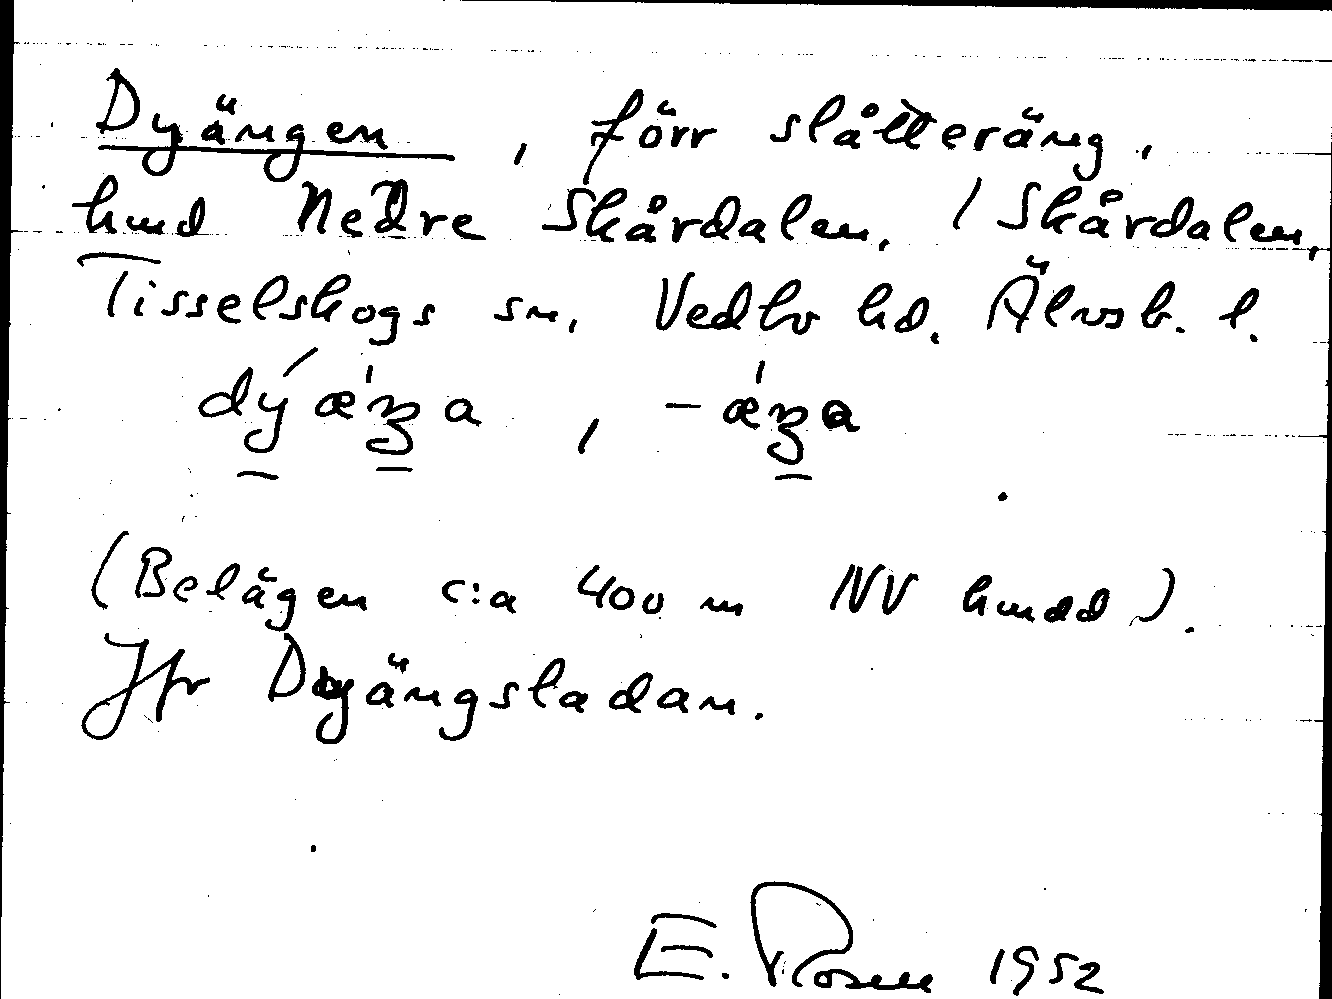 Dyängen, förr slåtteräng,
hmd Nedre Skårdalen, / Skårdalen,
Tisselskogs sn, Vedbo hd. Älvsb. l.
dý ǽŋa, -ǽŋa
(Belägen c:a 400 m NV hmdd).
Jfr Dyängsladan.
E. Rosen 1952